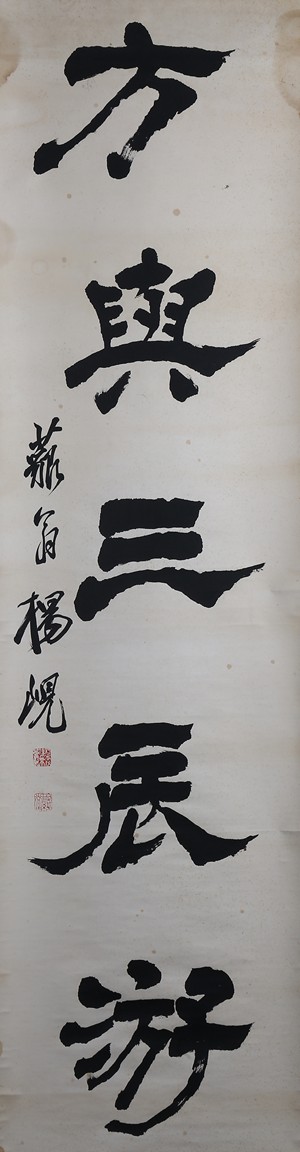 方與三辰游
藐翁楊峴